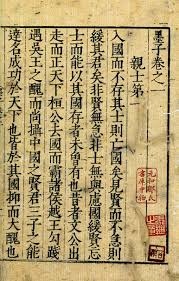 墨子卷之一
親士第一
入國而不存其士則亡國矣見賢而不急則
緩其君矣非賢無急非士無與慮國緩賢忘
士而能以其國存者未曾有也昔者文公出
走而正天下桓公去國而霸諸侯越王勾踐
遇吳王之醜而尚攝中國之賢君三子之能
達名成功於天下也皆於其國抑而大醜也